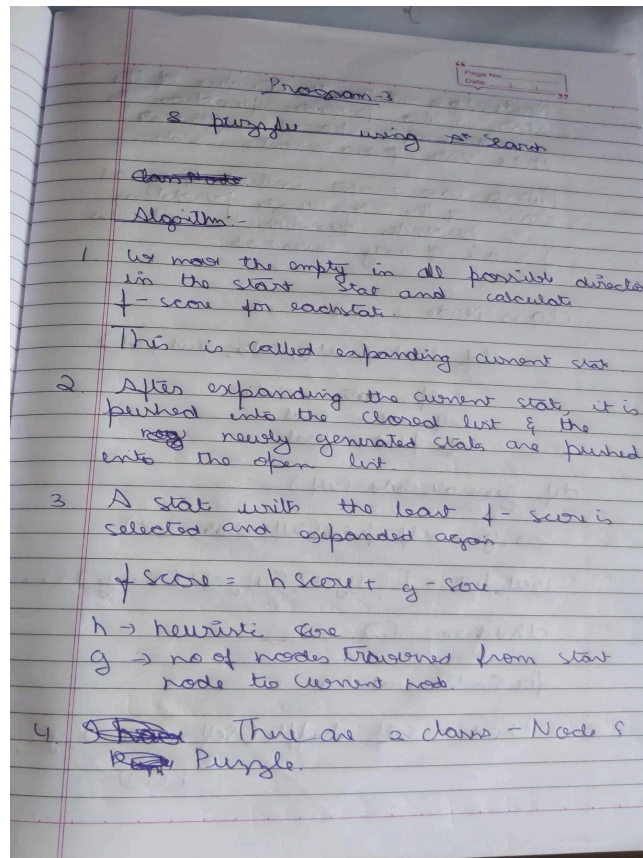 Page No.
Date:
Program-3
8 puzzle using A* Search
Class Node
Algorithm:-
1 we move the empty in all possible directio
in the start stat and calculate
f-score for each stat.
This is called expanding current stat.
2. After expanding the current stat, it is
pushed into the closed list & the
newly generated stats are pushed
into the open list.
3 A stat with the least f-score is
selected and expanded again
f score = h score + g-score
h → heuristic score
g → no of nodes traversed from start
node to current node.
4. There are 2 class - Node &
Puzzle.